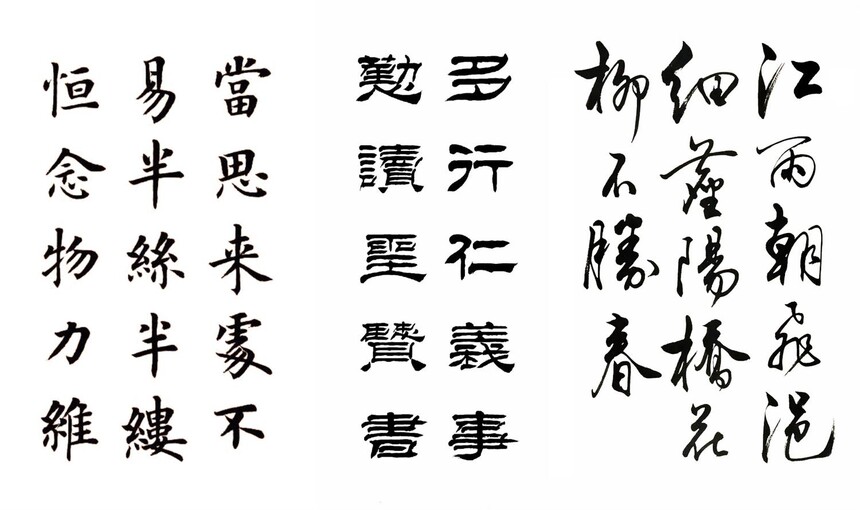 當思来處不
易半絲半縷
恒念物力維
多行仁義事
勤讀聖賢書
江雨朝飛浥
細塵陽橋花
柳不勝春